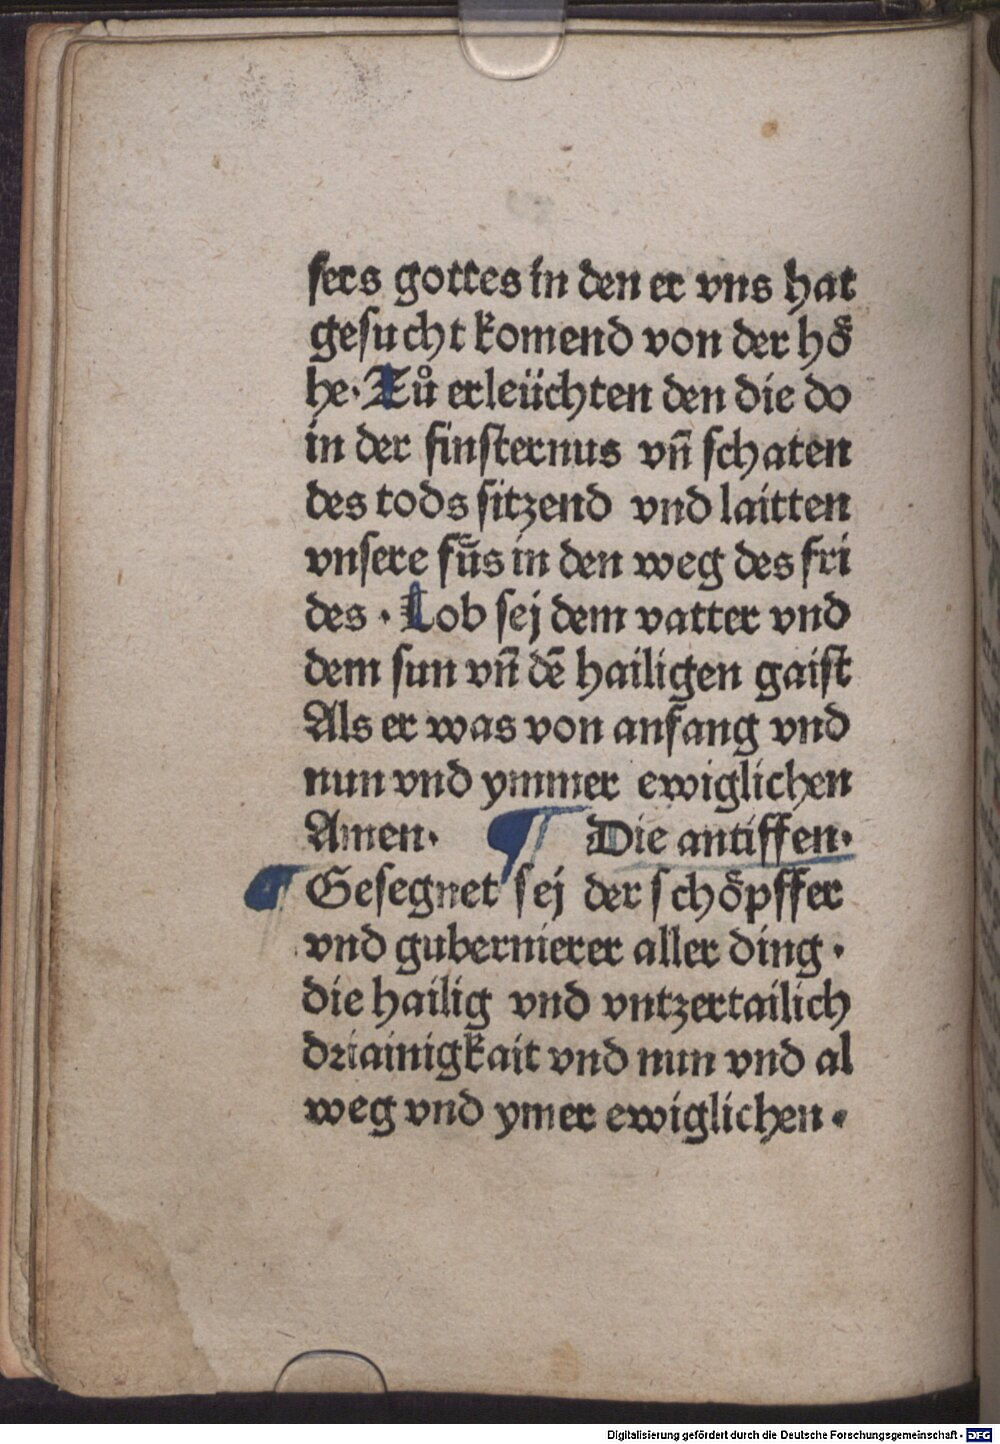 sers gottes in den er vns hat
gesucht komend von der hoͤ
he. Zů erleüchten den die do
in der finsternus vn̄ schaten
des tods sitzend vnd laitten
vnsere fuͤs in den weg des fri
des . Lob sej dem vatter vnd
dem sun vn̄ dē hailigen gaist
Als er was von anfang vnd
nun vnd ymmer ewiglichen
Amen. ¶ Die antiffen.
¶ Gesegnet sej der schoͤpffer
vnd gubernierer aller ding .
die hailig vnd vntzertailich
driainigkait vnd nun vnd al
weg vnd ymer ewiglichen .
Digitalisierung gefördert durch die Deutsche Forschungsgemeinschaft - DFG